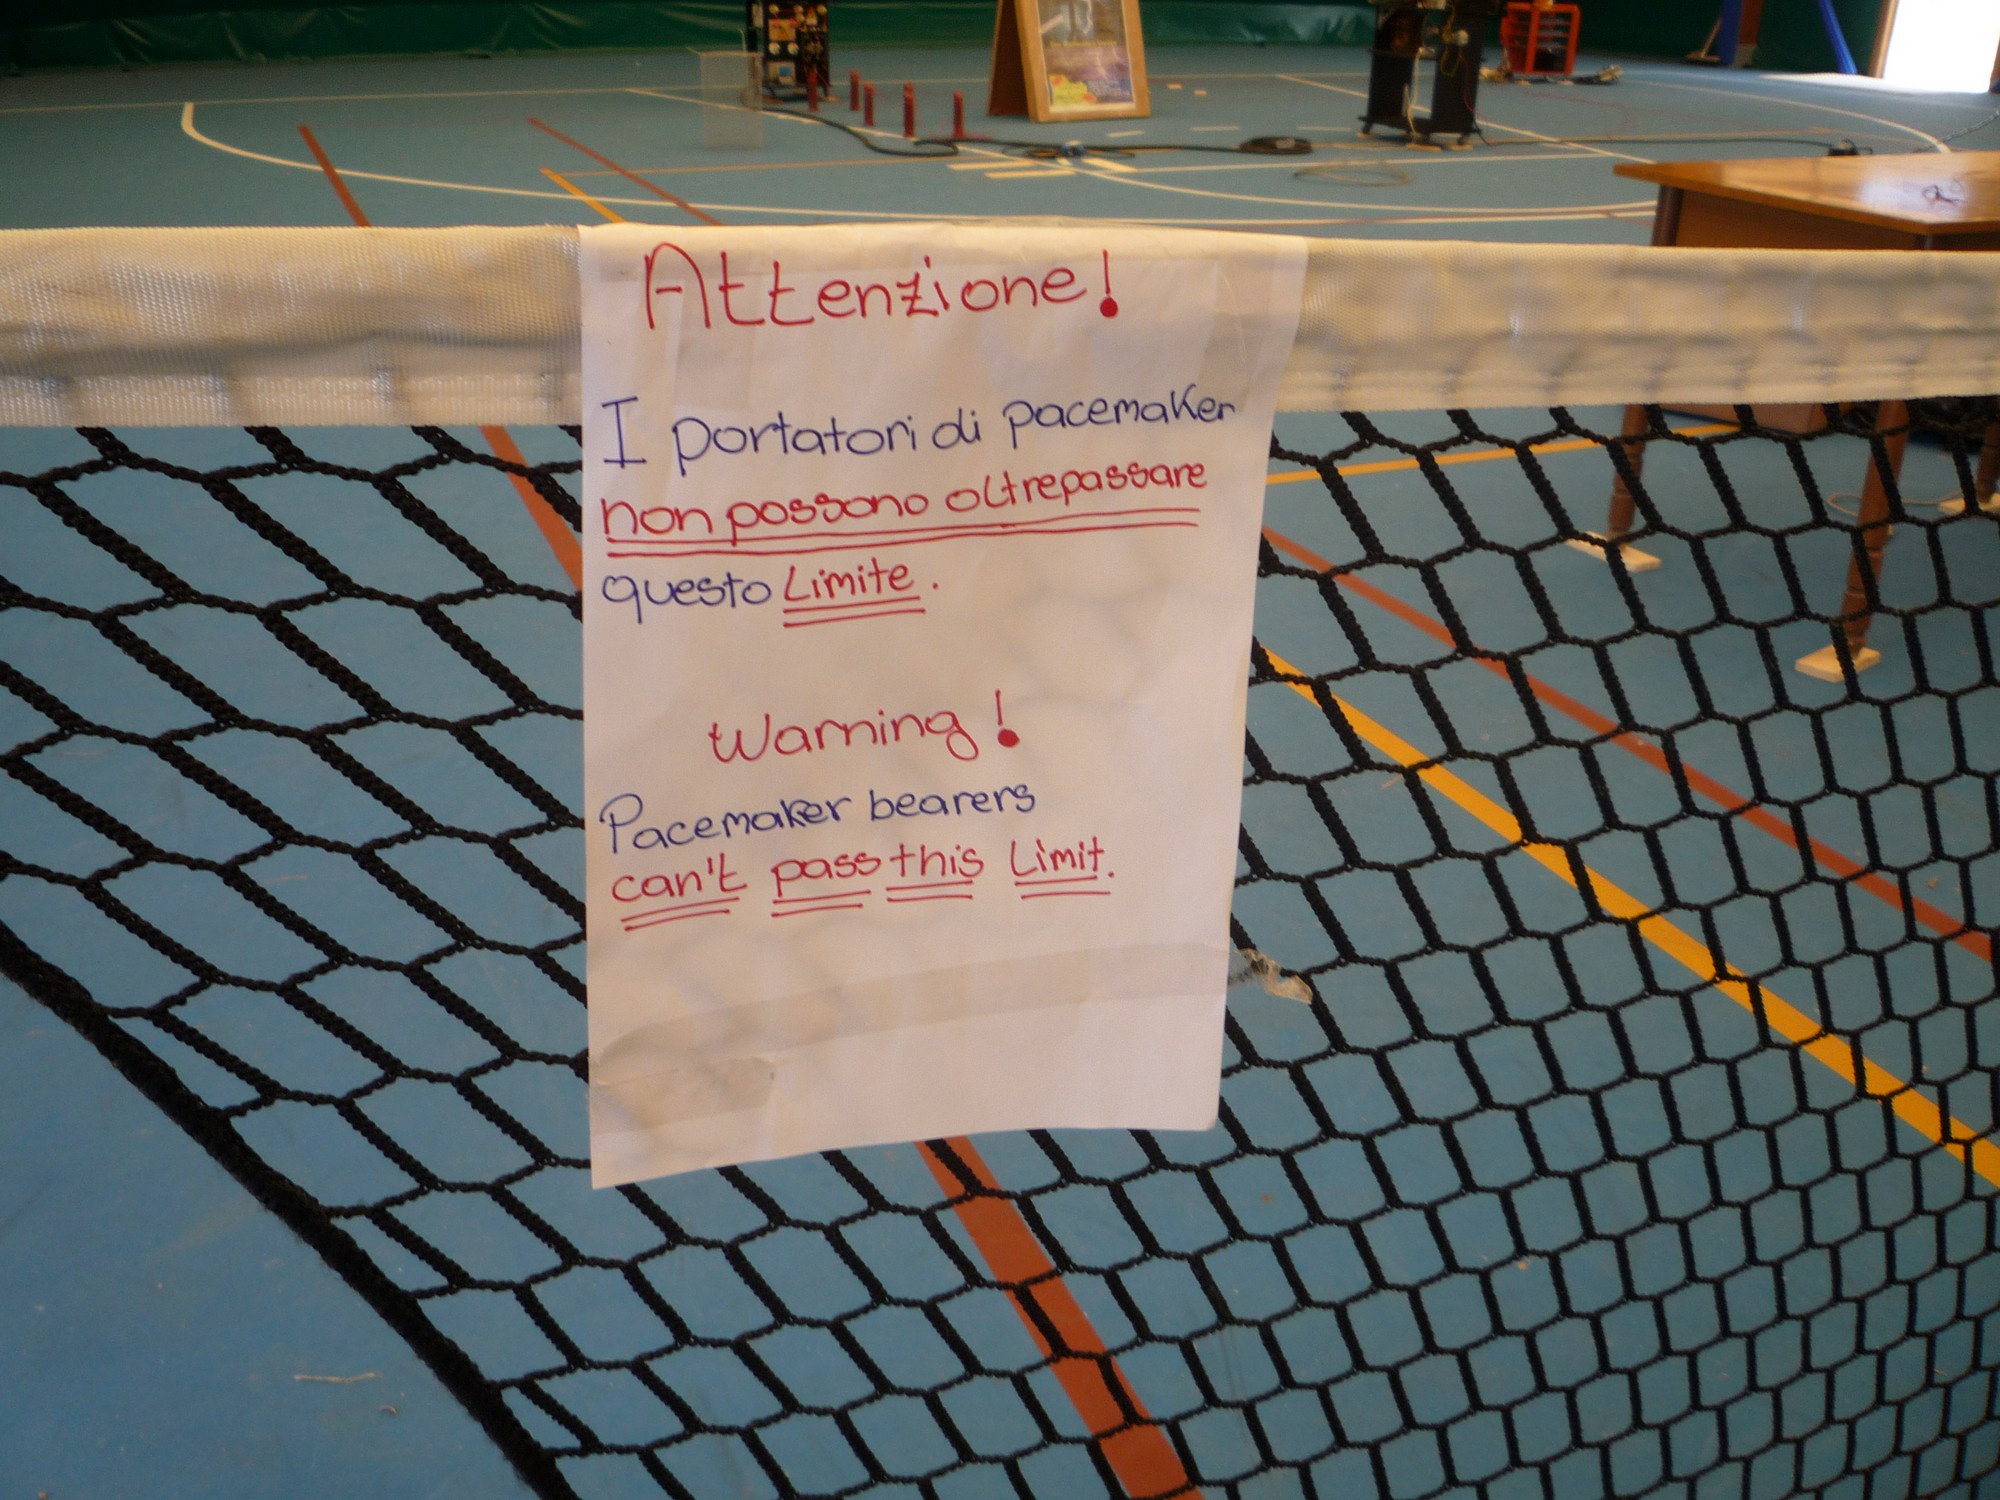 Attenzione!
I portatori di pacemaker
non possono oltrepassare
questo Limite.
Warning!
Pacemaker bearers
can't pass this Limit.